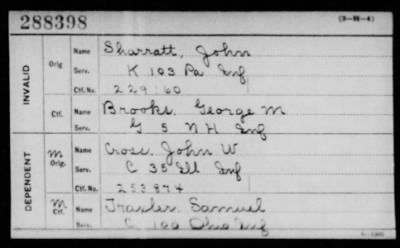 288398 (3-H-4)
INVALID
Orig
Name Sharratt, John
Serv. K 103 Pa Inf
Ctf. No. 229160
Ctf.
Name Brooks, George M
Serv. G 5 N H Inf
DEPENDENT
M Orig.
Name Cross, John W
Serv. C 35 Ill Inf
Ctf. No. 253874
M Ctf.
Name Traxler, Samuel
Serv. C 100 Ohio Inf